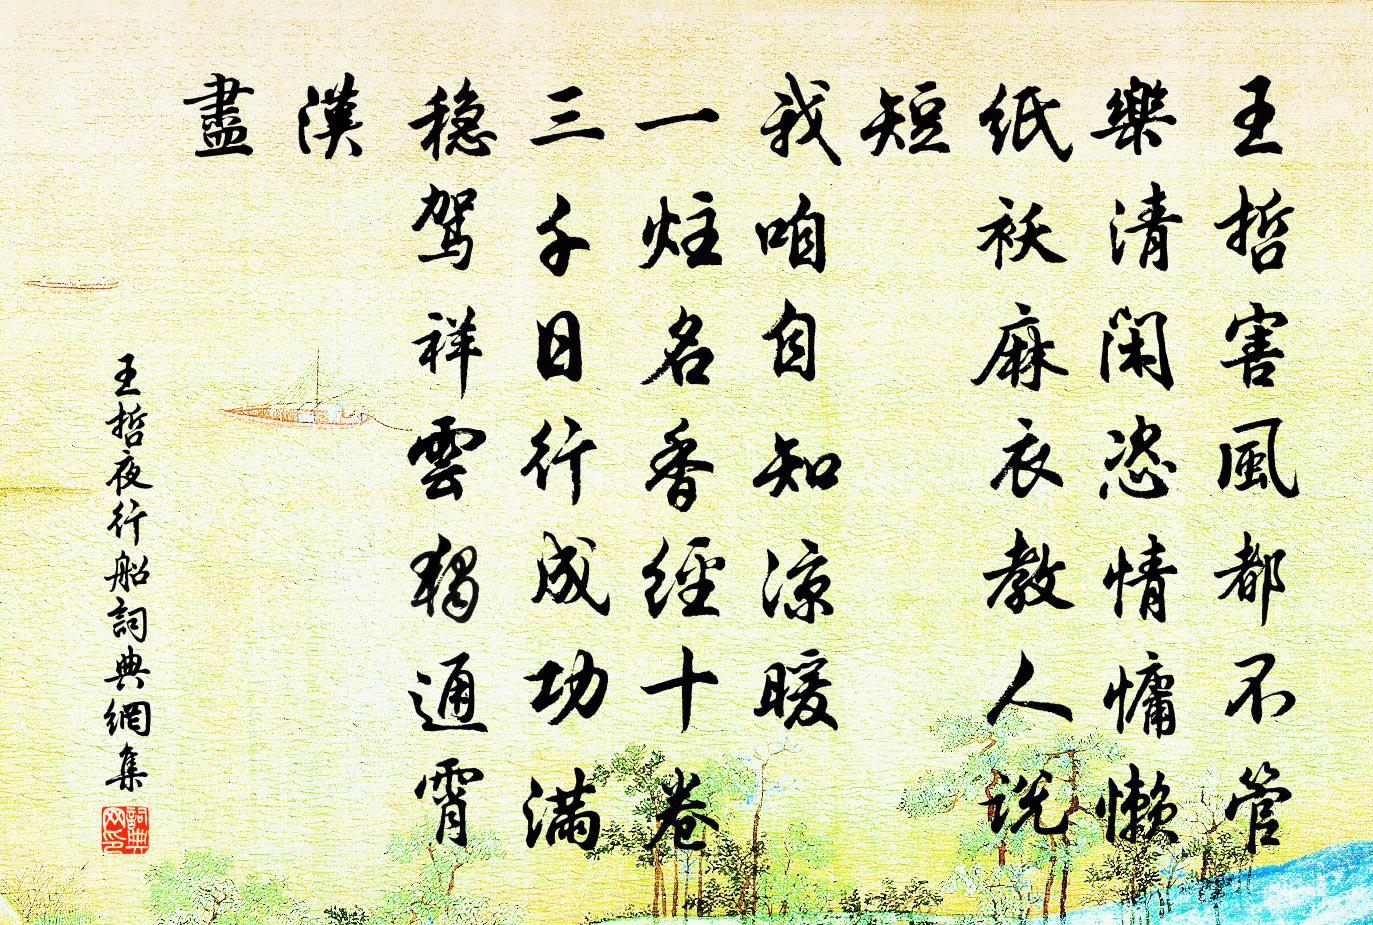 王哲害風都不管
樂清閑恣情慵懶
紙襖麻衣教人說
短
我咱自知涼暖
一炷名香經十卷
三千日行成功滿
穩駕祥雲獨通霄
漢
盡
王哲夜行船詞典網集
詞典網印